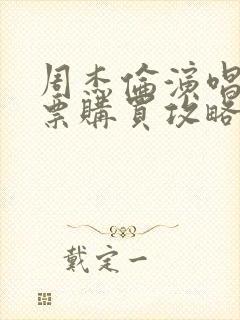 周杰倫演唱
票購買攻略
戴定一